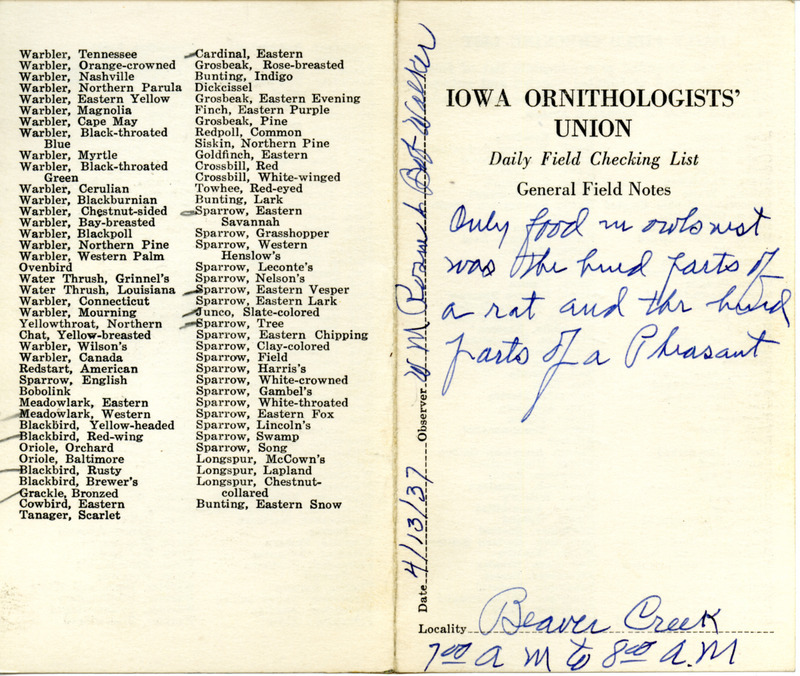 Warbler, Tennessee
Warbler, Orange-crowned
Warbler, Nashville
Warbler, Northern Parula
Warbler, Eastern Yellow
Warbler, Magnolia
Warbler, Cape May
Warbler, Black-throated
Blue
Warbler, Myrtle
Warbler, Black-throated
Green
Warbler, Cerulian
Warbler, Blackburnian
Warbler, Chestnut-sided
Warbler, Bay-breasted
Warbler, Blackpoll
Warbler, Northern Pine
Warbler, Western Palm
Ovenbird
Water Thrush, Grinnel's
Water Thrush, Louisiana
Warbler, Connecticut
Warbler, Mourning
Yellowthroat, Northern
Chat, Yellow-breasted
Warbler, Wilson's
Warbler, Canada
Redstart, American
Sparrow, English
Bobolink
Meadowlark, Eastern
Meadowlark, Western
Blackbird, Yellow-headed
Blackbird, Red-wing
Oriole, Orchard
Oriole, Baltimore
Blackbird, Rusty
Blackbird, Brewer's
Grackle, Bronzed
Cowbird, Eastern
Tanager, Scarlet
Cardinal, Eastern
Grosbeak, Rose-breasted
Bunting, Indigo
Dickcissel
Grosbeak, Eastern Evening
Finch, Eastern Purple
Grosbeak, Pine
Redpoll, Common
Siskin, Northern Pine
Goldfinch, Eastern
Crossbill, Red
Crossbill, White-winged
Towhee, Red-eyed
Bunting, Lark
Sparrow, Eastern
Savannah
Sparrow, Grasshopper
Sparrow, Western
Henslow's
Sparrow, Leconte's
Sparrow, Nelson's
Sparrow, Eastern Vesper
Sparrow, Eastern Lark
Junco, Slate-colored
Sparrow, Tree
Sparrow, Eastern Chipping
Sparrow, Clay-colored
Sparrow, Field
Sparrow, Harris's
Sparrow, White-crowned
Sparrow, Gambel's
Sparrow, White-throated
Sparrow, Eastern Fox
Sparrow, Lincoln's
Sparrow, Swamp
Sparrow, Song
Longspur, McCown's
Longspur, Lapland
Longspur, Chestnut-
collared
Bunting, Eastern Snow
Date 4/13/37 Observer W M Walker
IOWA ORNITHOLOGISTS'
UNION
Daily Field Checking List
General Field Notes
Only food in owls nest
was the hind parts of
a rat and the hind
parts of a Pheasant
Locality Beaver Creek
7 00 A M to 8 00 A.M